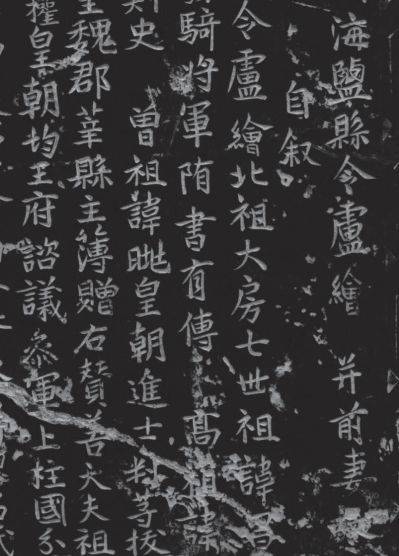 海鹽縣令盧繪 并前妻
自叙
令盧繪北祖大房七世祖諱
騎將軍隋書有傳 高祖諱
史 曾祖諱 皇朝進士判等拔
魏郡莘縣主簿贈右贊善大夫祖
權皇朝均王府諮議叅軍上柱國